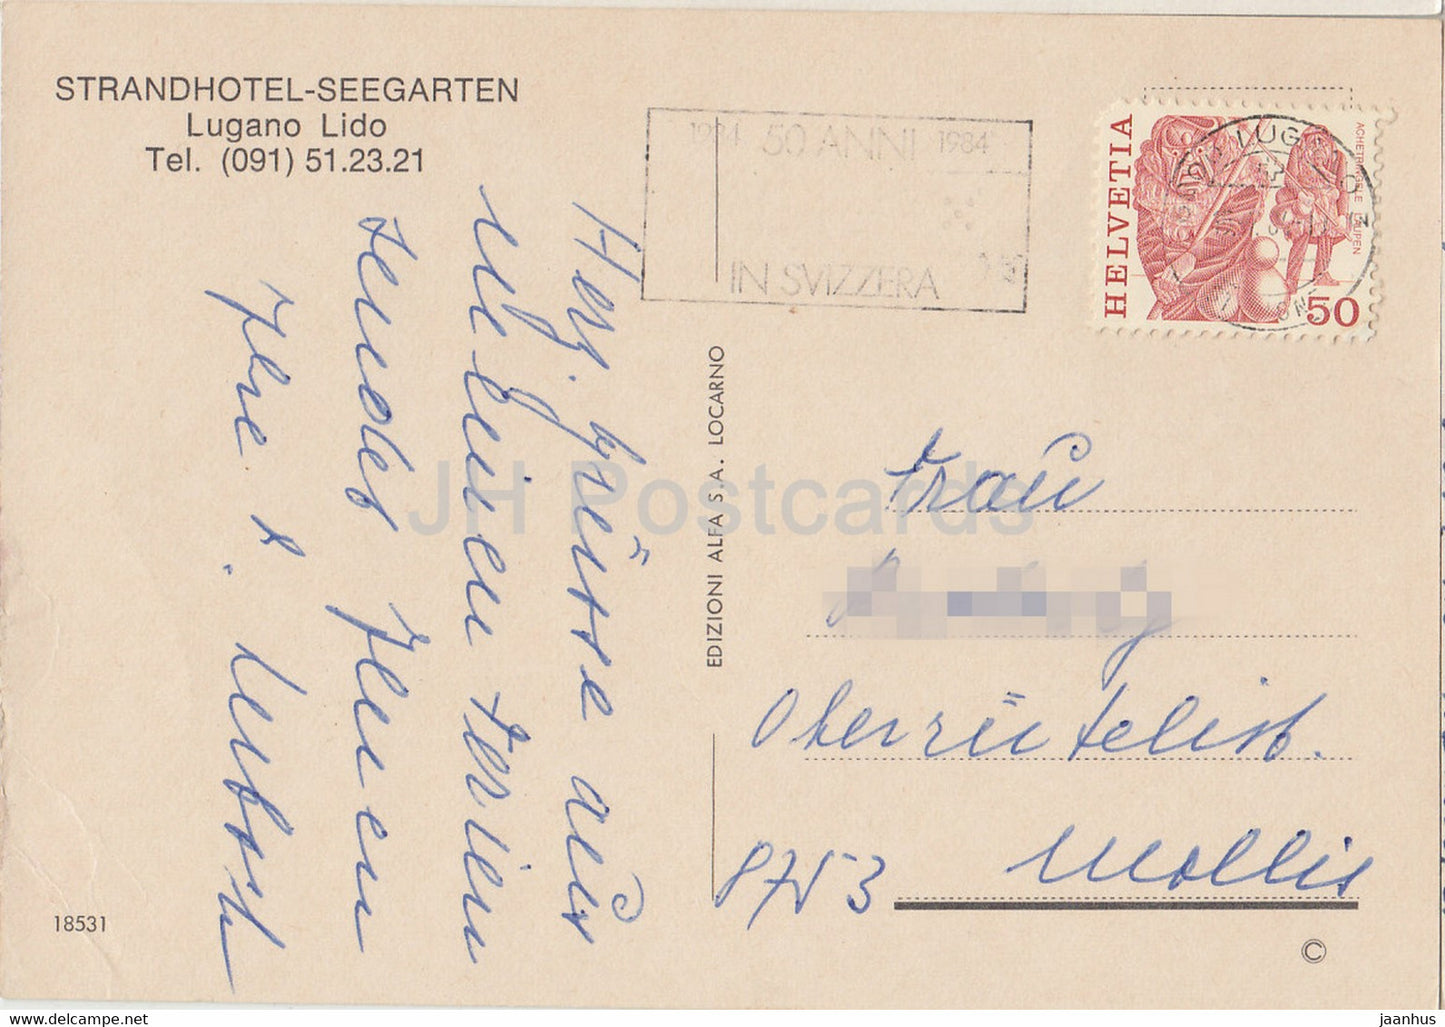 STRANDHOTEL-SEEGARTEN
Lugano Lido
Tel. (091) 51.23.21
Herz. Grüsse aus
meinen Ferien
sendet Ihnen
Ihre
18531
EDIZIONI ALFA S.A. LOCARNO
1934 50 ANNI 1984
IN SVIZZERA
HELVETIA
50
Frau
Oberrütelistr.
8753 Mollis
©
JH Postcards
www.delcampe.net
jaanhus